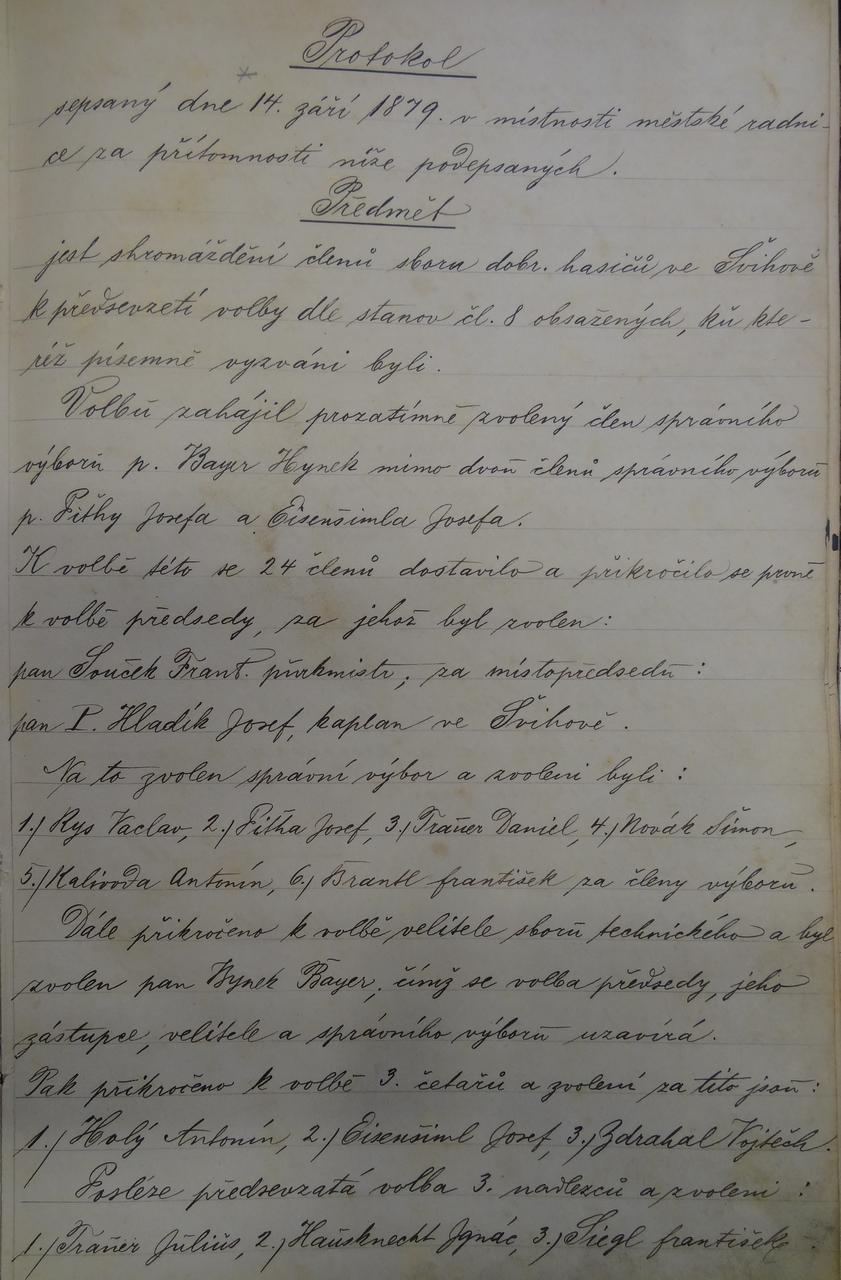 Protokol
sepsaný dne 14. září 1879. v místnosti městské radni-
ce za přítomnosti níže podepsaných.
Předmět
jest shromáždění členů sboru dobr. hasičů ve Švihově
k předsevzetí volby dle stanov čl. 8 obsažených, ku kte-
réž písemně vyzváni byli.
Volbu zahájil prozatímně zvolený člen správního
výboru p. Bayer Hynek mimo dvou členů správního výboru
p. Fiťhy Josefa a Eisenšimla Josefa.
K volbě této se 24 členů dostavilo a přikročilo se prvně
k volbě předsedy, za jehož byl zvolen:
pan Souček Frant. purkmistr; za místopředsedu:
pan P. Hladík Josef, kaplan ve Švihově.
Na to zvolen správní výbor a zvoleni byli:
1./ Rys Vaclav, 2./ Fiťha Josef, 3./ Trauer Daniel, 4./ Novák Šimon,
5./ Kalivoda Antonín, 6./ Brantl františek za členy výboru.
Dále přikročeno k volbě velitele sboru technického a byl
zvolen pan Hynek Bayer, čímž se volba předsedy, jeho
zástupce, velitele a správního výboru uzavírá.
Pak přikročeno k volbě 3. četařů a zvolení za tito jsou:
1./ Holý Antonín, 2./ Eisenšiml Josef, 3./ Zdrahal Vojtěch.
Posléze předsevzatá volba 3. nadlezců a zvoleni:
1./ Trauer Julius, 2./ Hausknecht Ignác, 3./ Siegl františek.